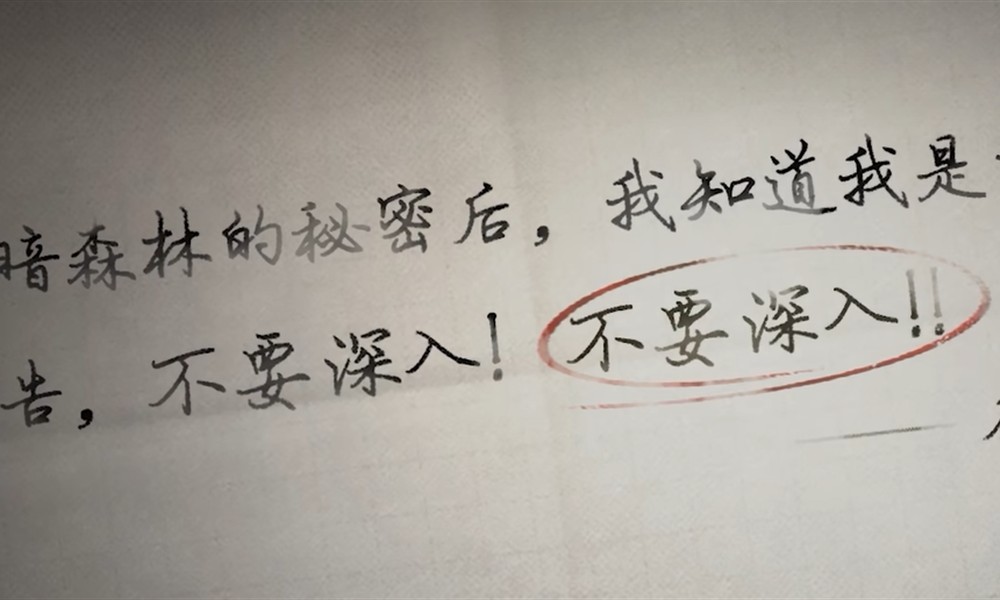 暗森林的秘密后，我知道我是
告，不要深入！不要深入！！